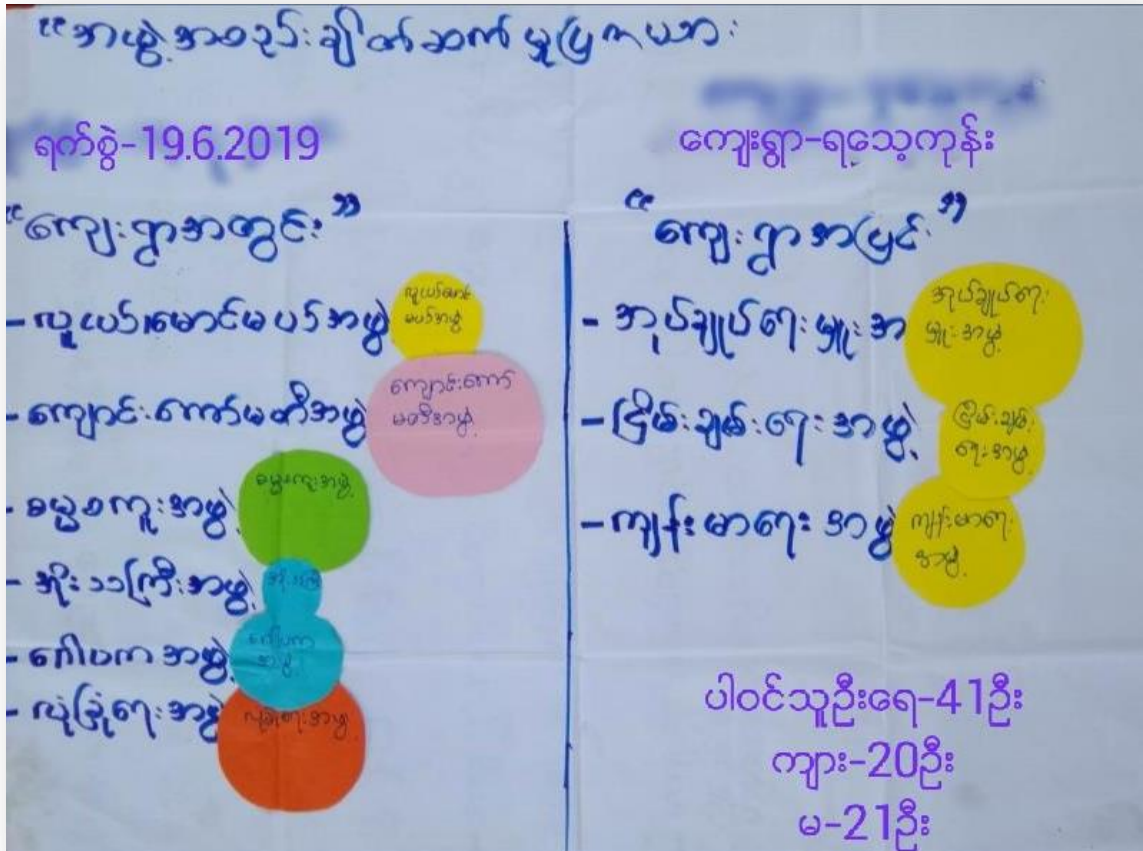 "အဖွဲ့အစည်းချိတ်ဆက်မှုပြဇယား
ရက်စွဲ-19.6.2019
ကျေးရွာ-ရသေ့ကုန်း
"ကျေးရွာအတွင်း"
- လူငယ်၊မောင်မယ်အဖွဲ့
လူငယ်မောင်
မယ်အဖွဲ့
- ကျောင်းကော်မတီအဖွဲ့
ကျောင်းကော်
မတီအဖွဲ့
- ဓမ္မစကူးအဖွဲ့
ဓမ္မစကူးအဖွဲ့
- အိုးသည်ကြီးအဖွဲ့
- ဂေါပကအဖွဲ့
ဂေါပက
အဖွဲ့
- လုံခြုံရေးအဖွဲ့
လုံခြုံရေးအဖွဲ့
"ကျေးရွာအပြင်"
- အုပ်ချုပ်ရေးမှူးအ
အုပ်ချုပ်ရေး
မှူးအဖွဲ့
- ငြိမ်းချမ်းရေးအဖွဲ့
ငြိမ်းချမ်း
ရေးအဖွဲ့
- ကျန်းမာရေးအဖွဲ့
ကျန်းမာရေး
အဖွဲ့
ပါဝင်သူဦးရေ-41ဦး
ကျား-20ဦး
မ-21ဦး